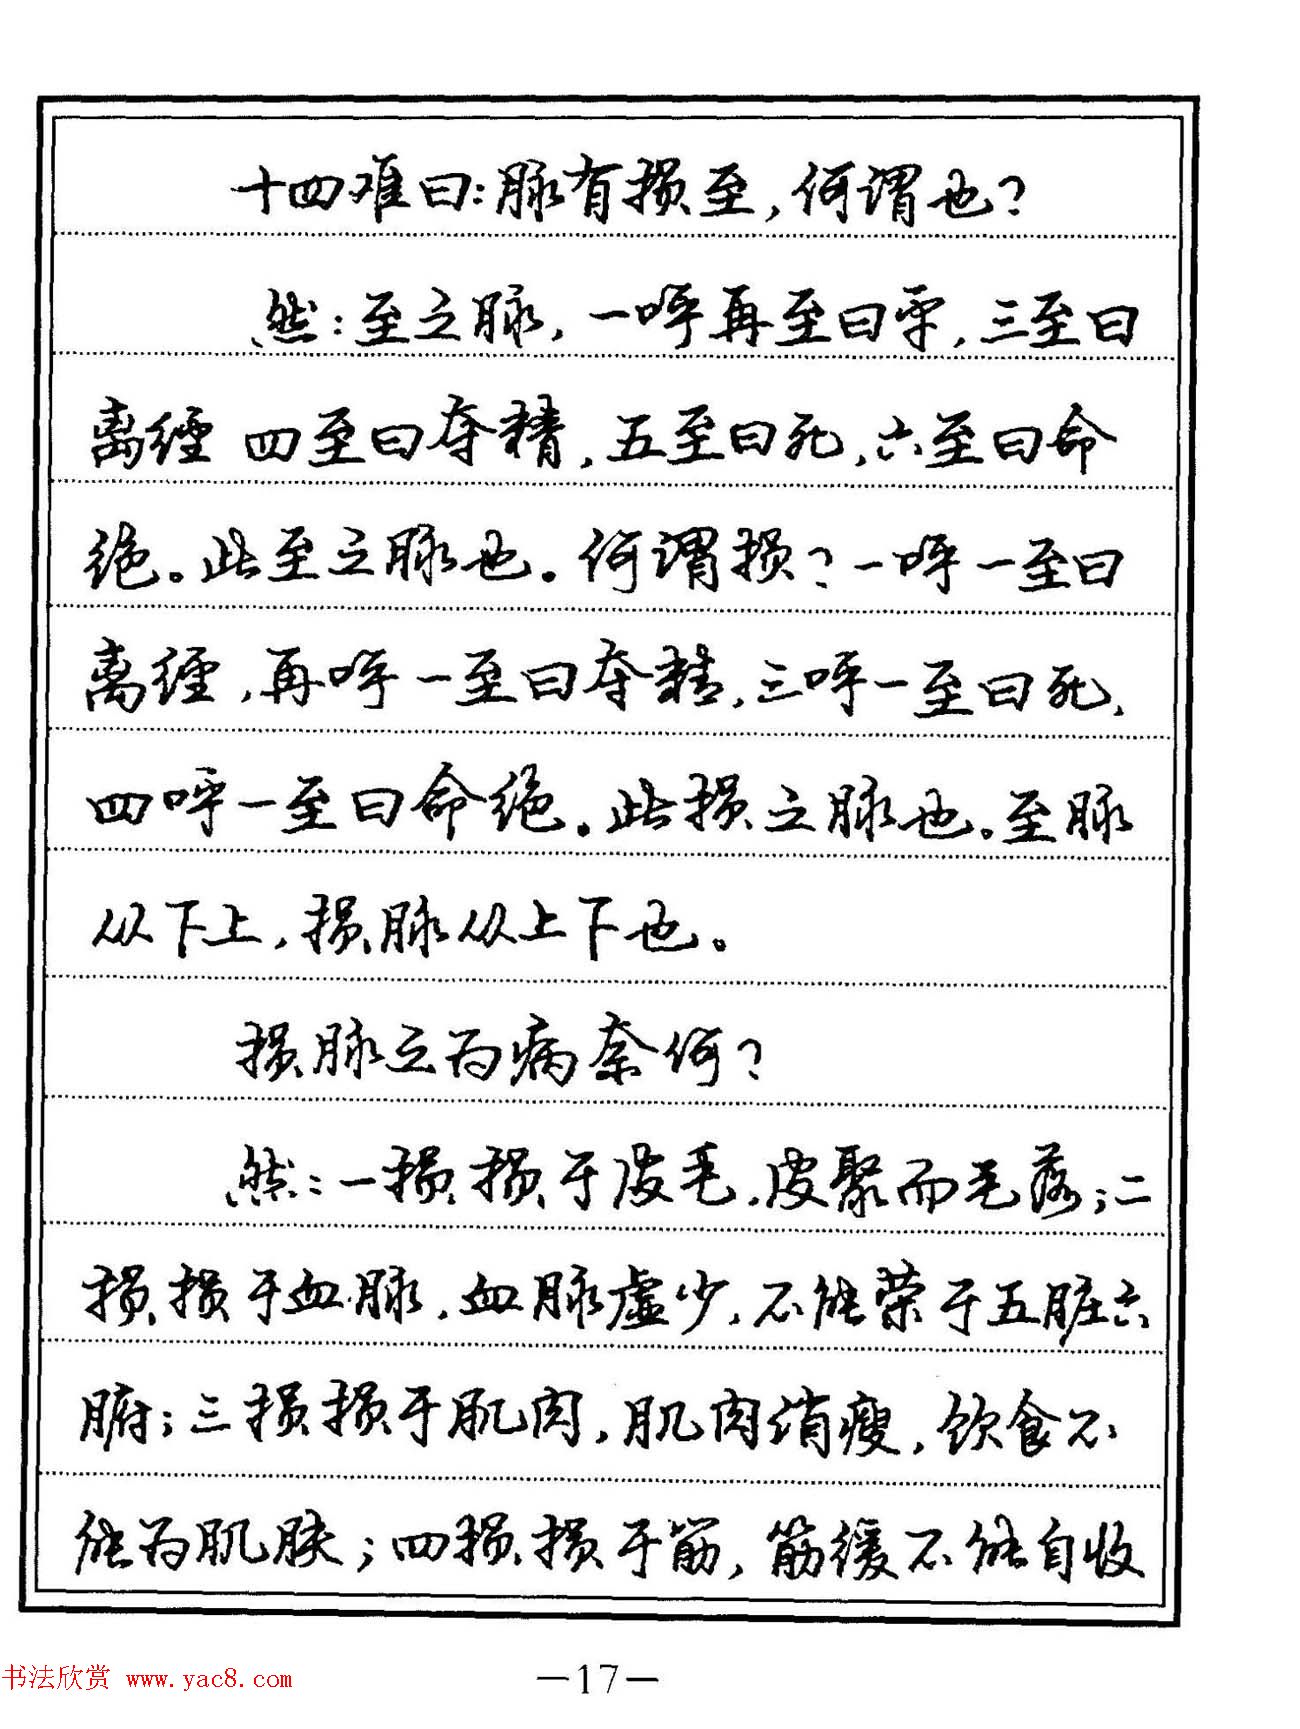 十四难曰:脉有损至,何谓也?
然:至之脉,一呼再至曰平,三至曰
离经 四至曰夺精,五至曰死,六至曰命
绝。此至之脉也。何谓损?一呼一至曰
离经,再呼一至曰夺精,三呼一至曰死,
四呼一至曰命绝。此损之脉也。至脉
从下上,损脉从上下也。
损脉之为病奈何?
然:一损损于皮毛,皮聚而毛落;二
损损于血脉,血脉虚少,不能荣于五脏六
腑;三损损于肌肉,肌肉消瘦,饮食不
能为肌肤;四损损于筋,筋缓不能自收
书法欣赏 www.yac8.com
—17—